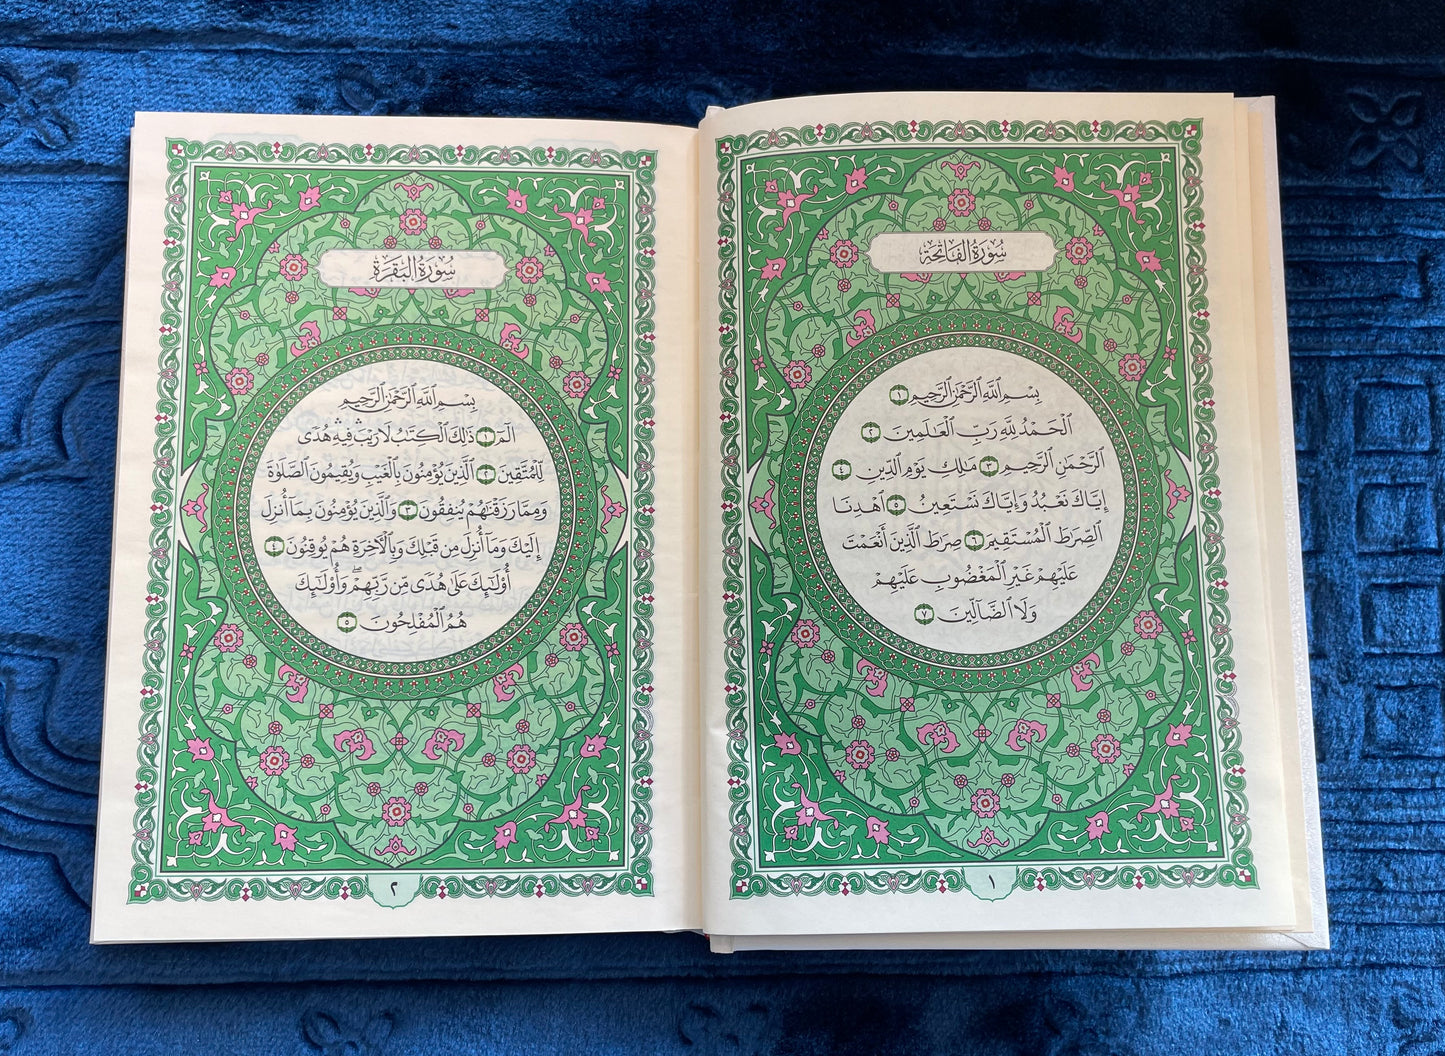 سُورَةُ الْفَاتِحَةِ
بِسْمِ ٱللَّهِ ٱلرَّحْمَٰنِ ٱلرَّحِيمِ ١
ٱلْحَمْدُ لِلَّهِ رَبِّ ٱلْعَٰلَمِينَ ٢
ٱلرَّحْمَٰنِ ٱلرَّحِيمِ ٣ مَٰلِكِ يَوْمِ ٱلدِّينِ ٤
إِيَّاكَ نَعْبُدُ وَإِيَّاكَ نَسْتَعِينُ ٥ ٱهْدِنَا
ٱلصِّرَٰطَ ٱلْمُسْتَقِيمَ ٦ صِرَٰطَ ٱلَّذِينَ أَنْعَمْتَ
عَلَيْهِمْ غَيْرِ ٱلْمَغْضُوبِ عَلَيْهِمْ
وَلَا ٱلضَّآلِّينَ ٧
١
سُورَةُ الْبَقَرَةِ
بِسْمِ ٱللَّهِ ٱلرَّحْمَٰنِ ٱلرَّحِيمِ
الٓمٓ ١ ذَٰلِكَ ٱلْكِتَٰبُ لَا رَيْبَ ۛ فِيهِ ۛ هُدًى
لِّلْمُتَّقِينَ ٢ ٱلَّذِينَ يُؤْمِنُونَ بِٱلْغَيْبِ وَيُقِيمُونَ ٱلصَّلَوٰةَ
وَمِمَّا رَزَقْنَٰهُمْ يُنفِقُونَ ٣ وَٱلَّذِينَ يُؤْمِنُونَ بِمَآ أُنزِلَ
إِلَيْكَ وَمَآ أُنزِلَ مِن قَبْلِكَ وَبِٱلْءَاخِرَةِ هُمْ يُوقِنُونَ ٤
أُو۟لَٰٓئِكَ عَلَىٰ هُدًى مِّن رَّبِّهِمْ ۖ وَأُو۟لَٰٓئِكَ
هُمُ ٱلْمُفْلِحُونَ ٥
٢